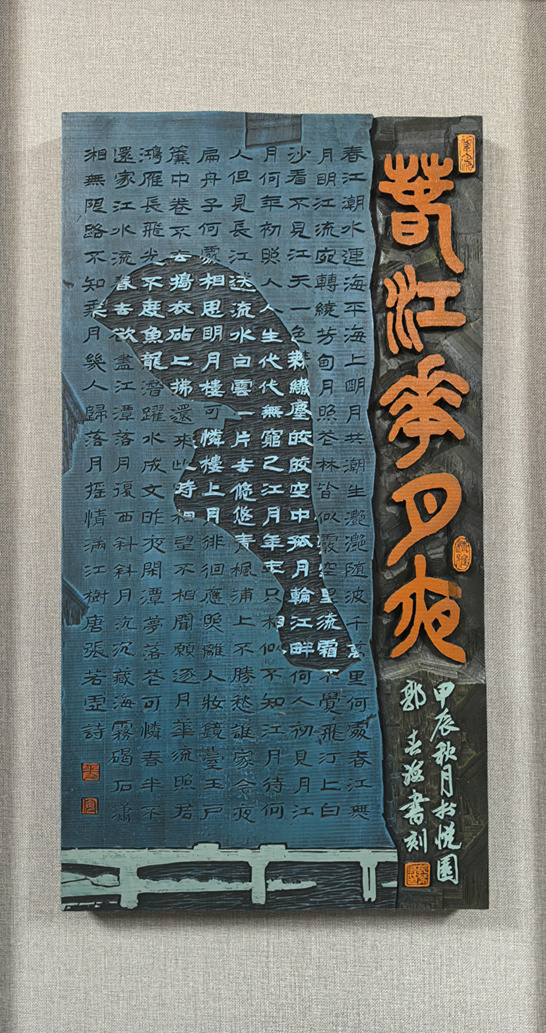 春江華月夜
春江潮水連海平海上明月共潮生灩灩隨波千萬里何處春江無
月明江流宛轉繞芳甸月照花林皆似霰空里流霜不覺飛汀上白
沙看不見江天一色無纖塵皎皎空中孤月輪江畔何人初見月江
月何年初照人人生代代無窮已江月年年只相似不知江月待何
人但見長江送流水白雲一片去悠悠青楓浦上不勝愁誰家今夜
扁舟子何處相思明月樓可憐樓上月徘徊應照離人妝鏡臺玉戶
簾中卷不去擣衣砧上拂還來此時相望不相聞願逐月華流照君
鴻雁長飛光不度魚龍潛躍水成文昨夜閑潭夢落花可憐春半不
還家江水流春去欲盡江潭落月復西斜斜月沉沉藏海霧碣石瀟
湘無限路不知乘月幾人歸落月搖情滿江樹唐張若虛詩
甲辰秋月於悅園
郭海書刻